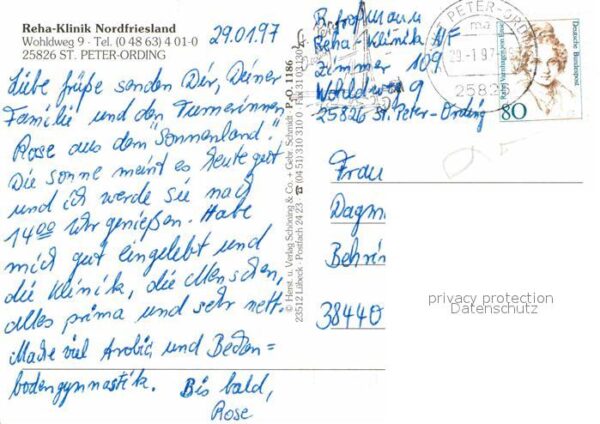 Reha-Klinik Nordfriesland
Wohldweg 9 · Tel. (0 48 63) 4 01-0
25826 ST. PETER-ORDING
29.01.97
Liebe Grüße senden Dir, Deiner
Familie und den Turnerinnen
Rose aus dem "Sonnenland".
Die Sonne meint es heute gut
und ich werde sie nach
14 00 Uhr genießen. Habe
mich gut eingelebt und
die Klinik, die Menschen,
alles prima und sehr nett.
Mache viel und Becken=
bodengymnastik. Bis bald,
Rose
© Herst. u. Verlag Schöning & Co. + Gebr. Schmidt
23512 Lübeck · Postfach 24 23 · ☎ (04 51) 310 310 0 · Fax 31 03 130
P-O. 1186
R.
Reha-Klinik NF
Zimmer 109
Wohldweg 9
25826 St. Peter-Ording
ST. PETER-ORDING
29-1.97
25826
Deutsche Bundespost
Rahel Varnhagen von Ense
80
Frau
Dagm
Behrin
38440
privacy protection
Datenschutz